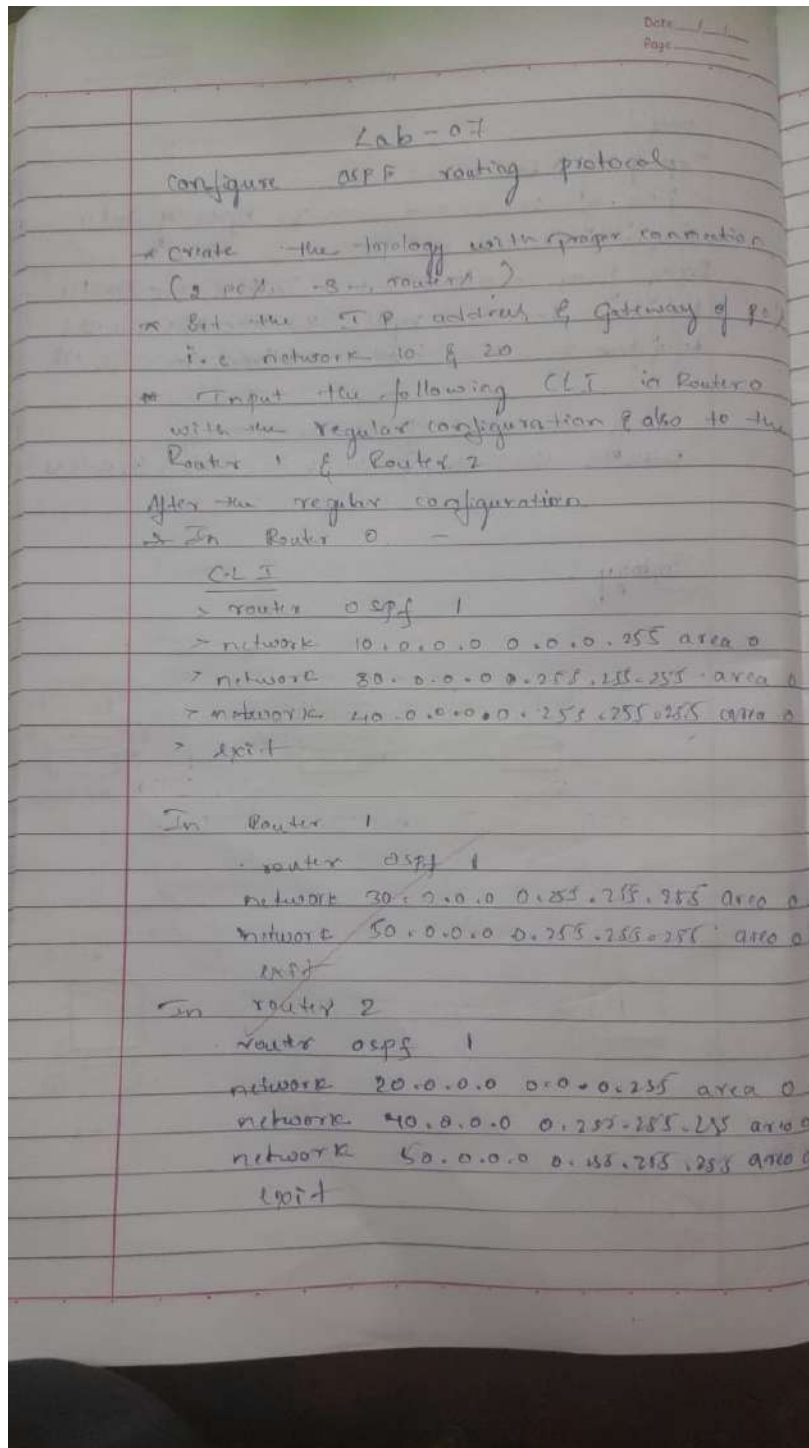 Date / /
Page
Lab - 07
Configure OSPF routing protocol
* Create the topology with proper connection
(2 PC's, 3 routers)
* Set the IP address & Gateway of PC's
i.e network 10 & 20
* Input the following CLI in Router 0
with the regular configuration & also to the
Router 1 & Router 2
After the regular configuration
* In Router 0 -
CLI
> router ospf 1
> network 10.0.0.0 0.0.0.255 area 0
> network 30.0.0.0 0.255.255.255 area 0
> network 40.0.0.0 0.255.255.255 area 0
> exit
In Router 1
router ospf 1
network 30.0.0.0 0.255.255.255 area 0
network 50.0.0.0 0.255.255.255 area 0
exit
In router 2
router ospf 1
network 20.0.0.0 0.0.0.255 area 0
network 40.0.0.0 0.255.255.255 area 0
network 50.0.0.0 0.255.255.255 area 0
exit